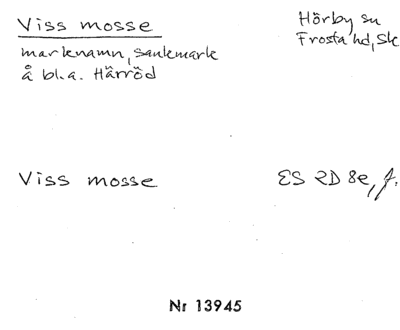 Viss mosse
Hörby sn
Frosta hd, Sk
marknamn, sankmark
å bl.a. Härröd
Viss mosse
ES 2D 8e, f.
Nr 13945